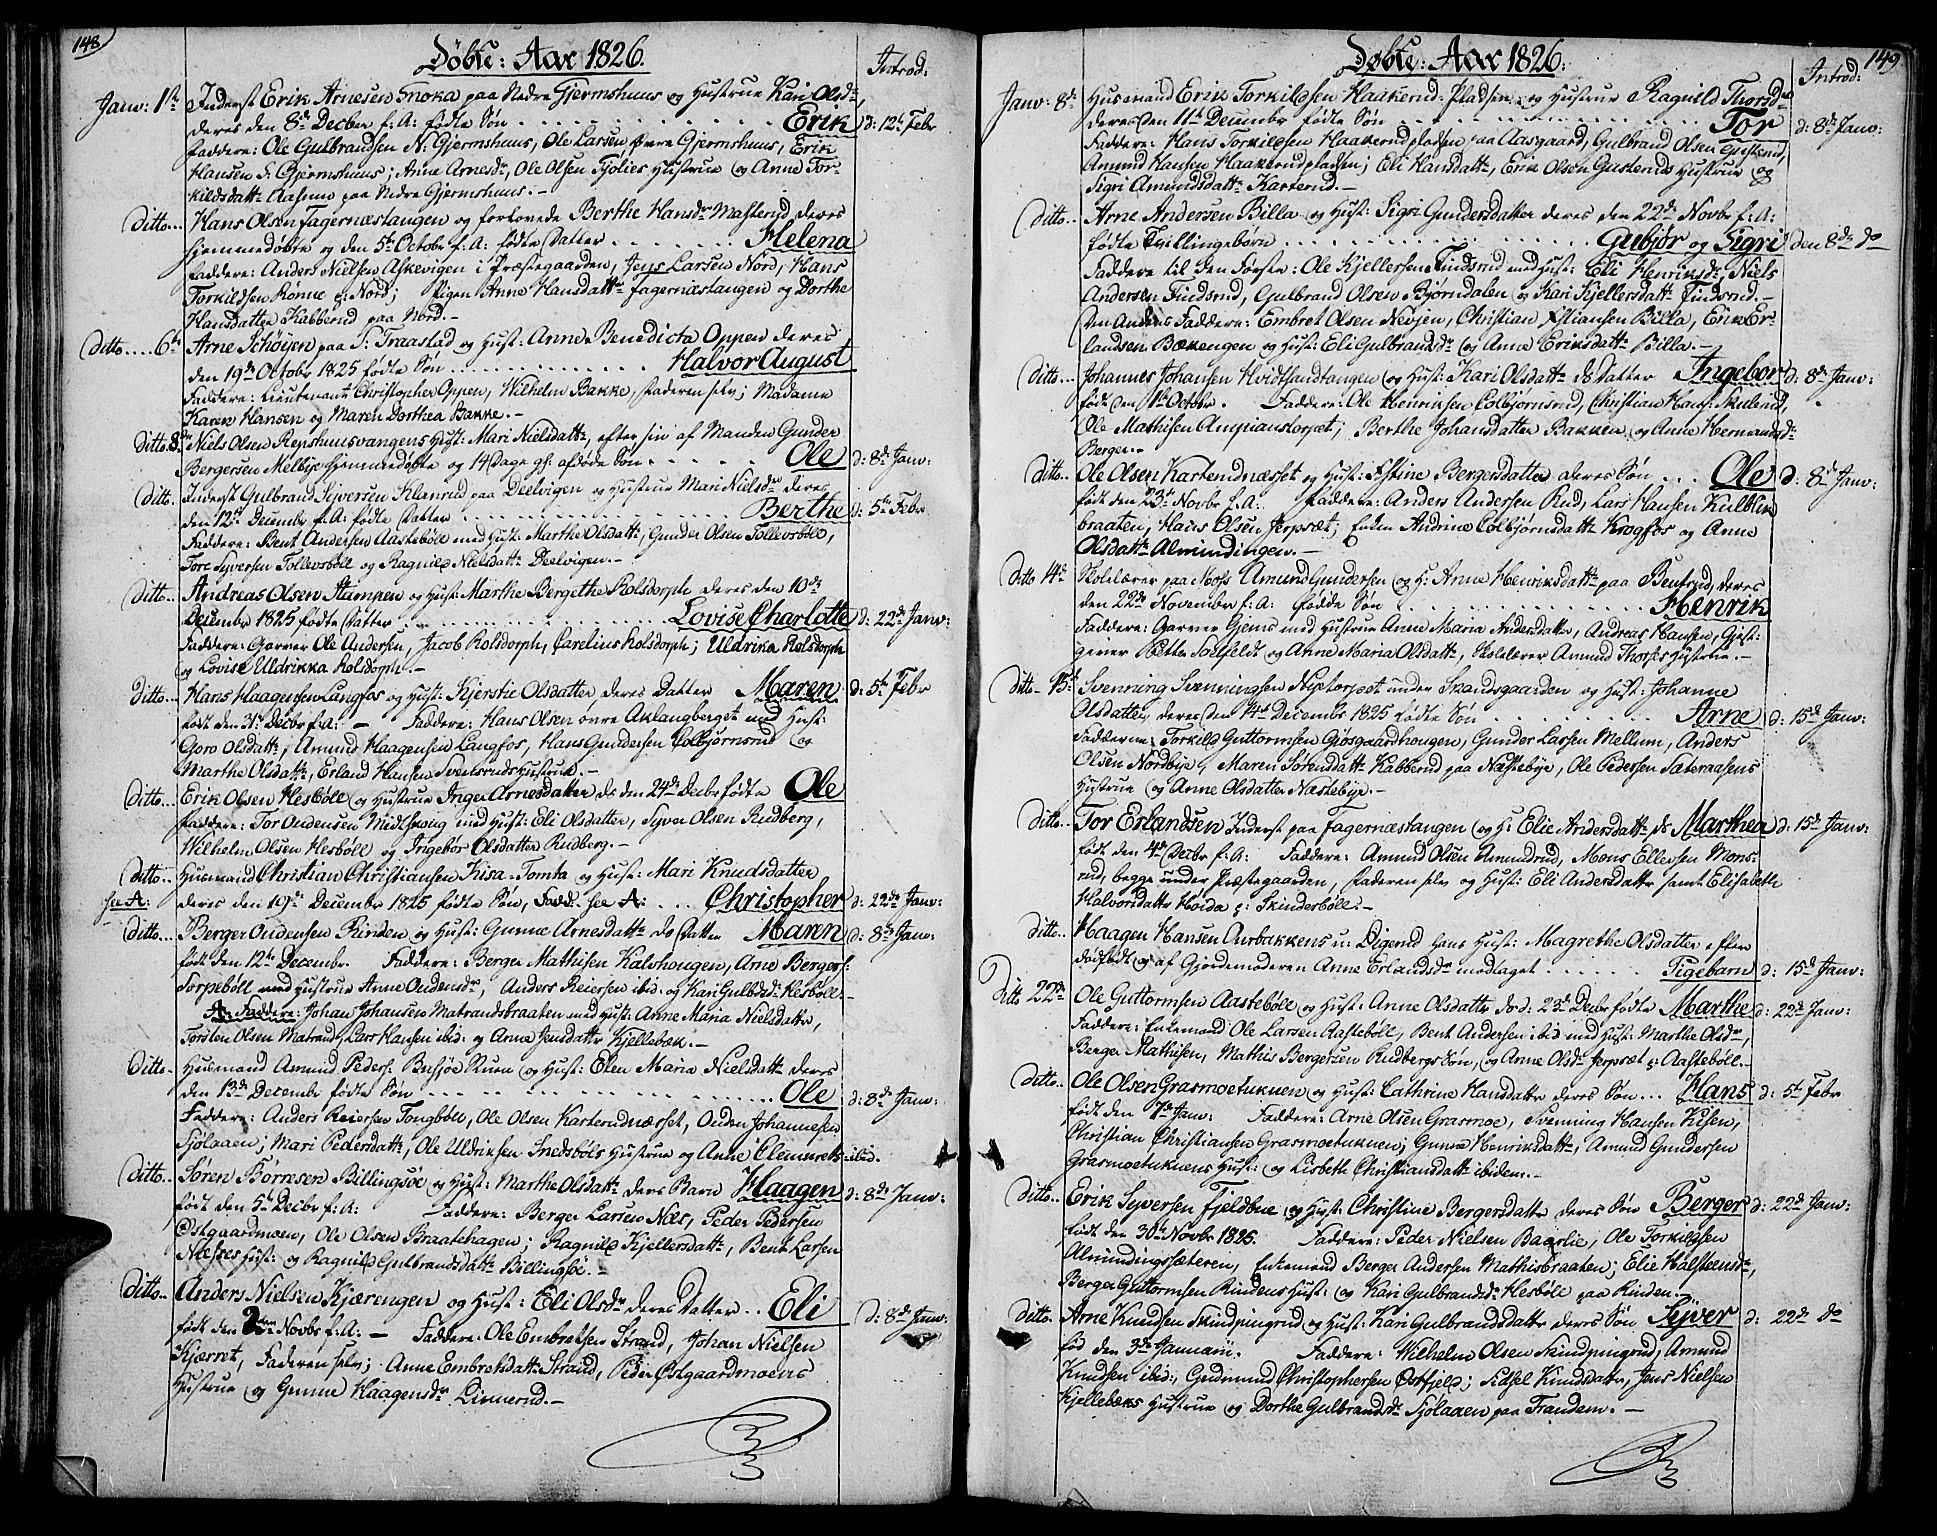 148
Døbte: Aar 1826.
Introd:
Janv: 1ste Inderst Erik Arnesen Snoka paa Nedre Gjermshuus og Hustrue Kari Olsdr,
deres den 8de Decber f:A: fødte Søn . . . Erik d: 12te Febr
Faddere: Ole Gulbrandsen N: Gjermshuus, Ole Larsen Øvre Gjermshuus, Erik
Hansen S: Gjermshuus; Anne Arnesdr, Ole Olsen Fjølies Hustrue og Anne Tor-
kildsdattr Aasum paa Nedre Gjermshuus. -
Ditto... Hans Olsen Fagernæstangen og forlovede Berthe Hansdr Masterud deres
hjemmedøbte og den 5te Octobr f:A: fødte Datter . . . Helena
Faddere: Anders Nielsen Askevigen i Præstegaarden, Jens Larsen Nord, Hans
Torkildsen Rønne p: Nord; Pigen Anne Hansdattr Fagernæstangen og Dorthe
Hansdatter Kabberud paa Nord. -
Ditto.....6te Arne Schøijen paa S: Fraastad og Hust: Anne Benedicta Oppen deres
den 19de Octobr 1825 fødte Søn . . . Halvor August
Faddere: Lieutenant Christopher Oppen, Wilhelm Bakke, Faderen selv; Madame
Karen Hansen og Maren Dorthea Bakke. -
Ditto 8de Niels Olsen Repshuusvangens Hust: Mari Nielsdattr, efter sin af Manden Gunder
Bergersen Melbye hjemmedøbte og 14 Dage gl: afdøde Søn . . . Ole d: 8de Janv:
Ditto. Inderst Gulbrand Syversen Klanrud paa Deelvigen og Hustrue Mari Nielsdr deres
den 12te Decembr f:A: fødte Datter . . . Berthe d: 5te Febr
Faddere: Bent Andersen Aastebøll med Hust: Marthe Olsdattr, Gunder Olsen Tollevsbøll,
Tore Syversen Tollevsbøll og Ragnild Nielsdattr Deelvigen. -
Ditto.. Andreas Olsen Stampen og Hust: Marthe Bergethe Rolsdorph deres den 10de
Decembr 1825 fødte Datter . . . Lovise Charlotte d: 22de Janv:
Faddere: Garver Ole Andersen, Jacob Rolsdorph, Carelius Rolsdorph; Uldrika Rolsdorph
og Lovise Uldrikka Rolsdorph. -
Ditto... Hans Haagensen Langfos og Hust: Kjerstie Olsdatter deres Datter Maren d: 5te Febr
født den 31te Decbr f:A: - Faddere: Hans Olsen øvre Aklangberget med Hust:
Goro Olsdattr, Amund Haagensen Langfos, Hans Gundersen Colbjørnsrud og
Marthe Olsdattr, Erland Hansen Svensruds Hustrue. -
Ditto... Erik Olsen Hesbøll og Hustrue Inger Arnesdatter ds den 24de Decbr fødte Ole
Faddere: Tor Oudensen Midtskoug med Hust: Eli Olsdatter, Syver Olsen Rudberg,
Wilhelm Olsen Hesbøll og Ingebør Olsdatter Rudberg. -
Ditto.. Husmand Christian Christiansen Kisa-Tomta og Hust: Mari Knudsdatter
see A: deres den 19de Decembr 1825 fødte Søn, Fadd. see A: . . . Christopher d: 22de Janv:
Ditto... Berger Oudensen Rinden og Hust: Gunne Arnesdattr ds Datter Maren d: 8de Janv:
født den 12te Decembr. Faddere: Berger Mathisen Kalvhougen, Arne Bergers:
Torpebøll med Hustrue Anne Oudensdr, Anders Reiersen ibid: og Kari Gulbdsdr Hesbøll. -
A: Faddere: Johan Johansen Matrandsbraaten med Hust: Anne Maria Nielsdatter,
Torsten Olsen Matrand, Lars Hansen ibid: og Anne Jensdatter Kjellebæk. -
Ditto- Husmand Amund Peders: Busjøe Ruen og Hust: Elen Maria Nielsdattr deres
den 13de Decembr fødte Søn . . . Ole d: 8de Janv:
Faddere: Anders Reiersen Tongbøll, Ole Olsen Kasterudnæsset, Ouden Johannesen
Sjølaaen; Mari Pedersdattr, Ole Uldriksen Snedsbøls Hustrue og Anne Clemmets- ibid.
Ditto.. Søren Børresen Billingsøe og Hust: Marthe Olsdattr deres Barn Haagen d: 8de Janv:
født den 5te Decbr f:A: Faddere: Berger Larsen Næs, Peder Pedersen
Østgaardmoen, Ole Olsen Braatehagen; Ragnild Kjellersdattr, Bent Larsen
Næsses Hust: og Ragnild Gulbrandsdattr Billingsøe. -
Ditto.. Anders Nielsen Kjærengen og Hust: Eli Olsdr deres Datter .. Eli d: 8de Janv:
født den 2den Novbr f:A: - Faddere: Ole Embretsen Strand, Johan Nielsen
Kjærret, Faderen selv; Anne Embretsdattr Strand, Peder Østgaardmoens
Hustrue og Gunne Haagensdr Linnerud. -
149
Døbte: Aar 1826:
Introd:
Janv: 8de Husmand Erik Torkildsen Haakerud-Pladsen og Hustrue Ragnild Thorsdr
deres den 11te Decembr fødte Søn . . . Tor d: 8de Janv:
Faddere: Hans Torkildsen Haakerudpladsen paa Aasgaard, Gulbrand Olsen Gusterud,
Amund Hansen Haakerudpladsen; Eli Hansdattr, Erik Olsen Gusteruds Hustrue og
Sigri Amundsdattr Karterud. -
Ditto.. Arne Andersen Billa og Hust: Sigri Gundersdatter deres den 22de Novbr f:A:
fødte Tvillingebørn . . . Gubjør og Sigri den 8de do
Faddere til den Første: Ole Kjellersen Findsrud med Hust: Eli Henriksdr, Niels
Andersen Findsrud, Gulbrand Olsen Bjørndalen og Kari Kjellersdattr Findsrud. -
Den Andens Faddere: Embret Olsen Nevjen, Christian Xstiansen Billa, Erik Er-
landsen Bækengen og Hust: Eli Gulbrandsdr og Anne Eriksdattr Billa. -
Ditto... Johannes Johansen Hvidtsandtangen og Hust: Kari Olsdattr ds Datter Ingebor d: 8de Janv:
født den 1ste Octobr. Faddere: Ole Henriksen Colbjørnsrud, Christian Hans: Skulerud,
Ole Mathisen Ampianstorpet; Berthe Johansdatter Bakken og Anne Hermandsdr
Berger. -
Ditto.. Ole Olsen Karterudnæsset og Hust: Xstine Bergersdatter deres Søn ... Ole d: 8de Janv:
født den 23de Novbr f:A: Faddere: Anders Andersen Rud, Lars Hansen Kulblik-
braaten, Hans Olsen Jerpsæt; Enken Andrine Colbjørnsdattr Krogfos og Anne
Olsdattr Almindingen. -
Ditto 14de Skolelærer paa Moss Amund Gundersen og H: Anne Henriksdattr paa Bentrud, deres
den 22de Novembr f:A: fødde Søn . . . Henrik
Faddere: Garver Gjems med Hustrue Anne Maria Andersdatter, Andreas Hansen, Gjest-
gever Petter Solfeldt og Anne Maria Olsdattr, Skolelærer Amund Thorses Hustrue. -
Ditto- 15de Svenning Svenningsen Nyetorpet under Skandsgaarden og Hust: Johanne
Olsdatter, deres den 14de Decembr 1825 fødte Søn . . . Arne d: 15de Janv:
Fadderne: Torkild Guttormsen Gjøsgaardhougen, Gunder Larsen Mellum, Anders
Olsen Nordbye, Maren Sørensdattr Kabberud paa Næstebye, Ole Pedersen Sateraasens
Hustrue og Anne Olsdatter Næstebye. -
Ditto.. Tor Erlandsen Inderst paa Fagernæstangen og H: Elie Andersdattr ds Marthea d: 15de Janv:
født den 4de Decbr f:A: Faddere: Amund Olsen Amundrud, Mons Ellevsen Mons-
rud, begge under Præstegaarden, Faderen selv og Hust: Eli Andersdatter samt Elisabeth
Halvorsdatter Høida p: Skinderbøll. -
Ditto.. Haagen Hansen Aurbakkens u: Digerud hans Hust: Magrethe Olsdatter efter
dødfødt og af Gjordemoderen Anne Erlandsdr modtaget . . . Pigebarn d: 15de Janv:
Ditto 22de Ole Guttormsen Aastebøll og Hust: Anne Olsdatter ds d: 23de Decbr fødte Marthe d: 22de Janv:
Faddere: Enkemand Ole Larsen Aastebøll, Bent Andersen ibid med Hust: Marthe Olsdr,
Berger Mathisen, Mathis Bergersen Rudbergs Søn, og Anne Olsdr Jerpsæt p: Aastebøll. -
Ditto.. Ole Olsen Grasmoetuknen og Hust: Cathrine Hansdattr deres Søn ... Hans d: 5te Febr
født den 7de Janv: Faddere: Arne Olsen Grasmoe, Svenning Hansen Kilsen,
Christian Christiansen Grasmoetuknen; Gunne Henriksdattr, Amund Gundersen
Grasmoetuknens Hust: og Lisbeth Christiansdattr ibidem. -
Ditto.. Erik Syversen Fjeldbue og Hust: Christine Bergersdattr deres Søn Berger d: 22de Janv:
født den 30te Novbr 1825. Faddere: Peder Nielsen Baarlie, Ole Torkildsen
Almindingsæteren, Enkemand Berger Andersen Mathisbraaten; Elie Halsteensdr,
Berger Guttormsen Rindens Hust: og Kari Gulbrandsdr Hesbøl paa Rinden. -
Ditto. Arne Knudsen Skindpungrud og Hust: Kari Gulbrandsdattr deres Søn Syver d: 22de do
fød den 3de Januarii. Faddere: Wilhelm Olsen Skindpungrud, Amund
Knudsen ibid:, Gudmund Christophersen Ostfjeld; Sidsel Knudsdattr, Jens Nielsen
Kjellebæks Hustrue og Dorthe Gulbrandsdr Sjølaaen paa Frandem. -